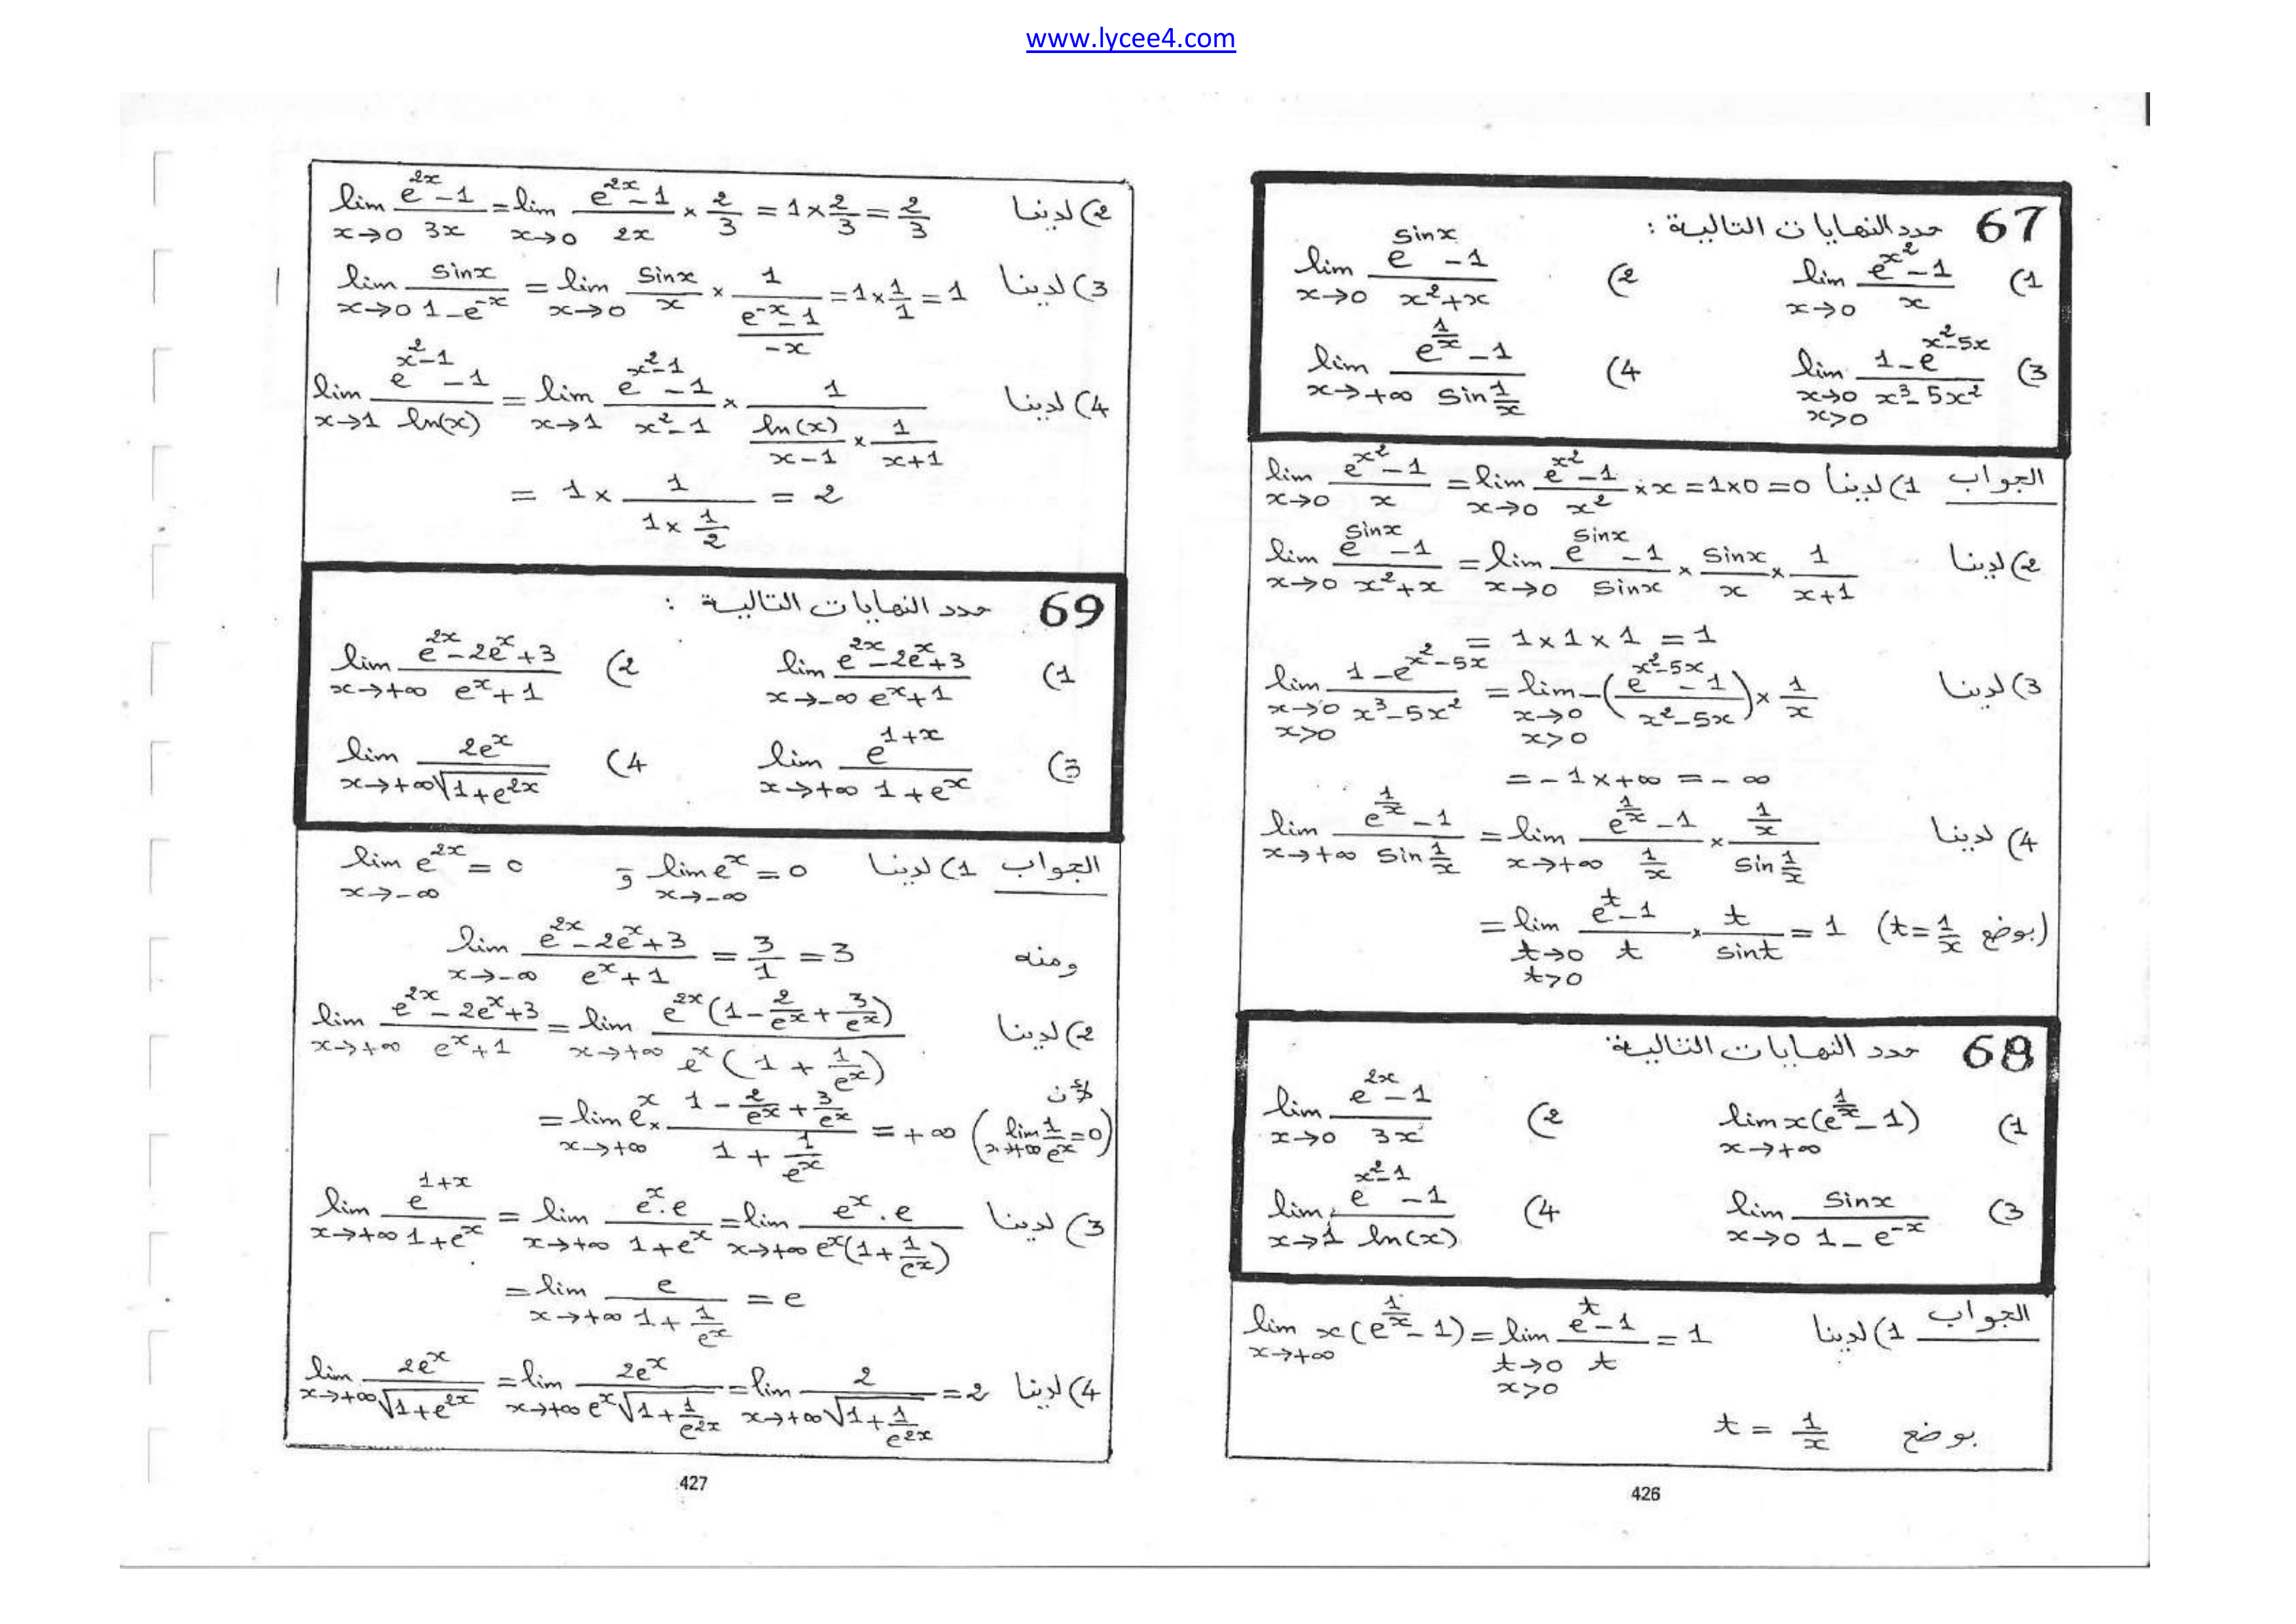 www.lycee4.com
67 حدد النهايات التالية :
1) lim_{x→0} (e^{x²}-1)/x    2) lim_{x→0} (e^{sinx}-1)/(x²+x)
3) lim_{x→0, x>0} (1-e^{x²-5x})/(x³-5x²)    4) lim_{x→+∞} (e^{1/x}-1)/(sin 1/x)
الجواب 1) لدينا lim_{x→0} (e^{x²}-1)/x = lim_{x→0} (e^{x²}-1)/x² × x = 1×0 = 0
2) لدينا lim_{x→0} (e^{sinx}-1)/(x²+x) = lim_{x→0} (e^{sinx}-1)/sinx × sinx/x × 1/(x+1)
= 1×1×1 = 1
3) لدينا lim_{x→0, x>0} (1-e^{x²-5x})/(x³-5x²) = lim_{x→0, x>0} -((e^{x²-5x}-1)/(x²-5x)) × 1/x
= -1×+∞ = -∞
4) لدينا lim_{x→+∞} (e^{1/x}-1)/(sin 1/x) = lim_{x→+∞} (e^{1/x}-1)/(1/x) × (1/x)/(sin 1/x)
= lim_{t→0, t>0} (e^t-1)/t × t/sint = 1 (بوضع t=1/x)
68 حدد النهايات التالية
1) lim_{x→+∞} x(e^{1/x}-1)    2) lim_{x→0} (e^{2x}-1)/3x
3) lim_{x→0} sinx/(1-e^{-x})    4) lim_{x→1} (e^{x²-1}-1)/ln(x)
الجواب 1) لدينا lim_{x→+∞} x(e^{1/x}-1) = lim_{t→0, x>0} (e^t-1)/t = 1
بوضع t = 1/x
426
2) لدينا lim_{x→0} (e^{2x}-1)/3x = lim_{x→0} (e^{2x}-1)/2x × 2/3 = 1×2/3 = 2/3
3) لدينا lim_{x→0} sinx/(1-e^{-x}) = lim_{x→0} sinx/x × 1/((e^{-x}-1)/-x) = 1×1/1 = 1
4) لدينا lim_{x→1} (e^{x²-1}-1)/ln(x) = lim_{x→1} (e^{x²-1}-1)/(x²-1) × 1/(ln(x)/(x-1) × 1/(x+1))
= 1 × 1/(1×1/2) = 2
69 حدد النهايات التالية :
1) lim_{x→-∞} (e^{2x}-2e^x+3)/(e^x+1)    2) lim_{x→+∞} (e^{2x}-2e^x+3)/(e^x+1)
3) lim_{x→+∞} e^{1+x}/(1+e^x)    4) lim_{x→+∞} 2e^x/√(1+e^{2x})
الجواب 1) لدينا lim_{x→-∞} e^x = 0 و lim_{x→-∞} e^{2x} = 0
ومنه lim_{x→-∞} (e^{2x}-2e^x+3)/(e^x+1) = 3/1 = 3
2) لدينا lim_{x→+∞} (e^{2x}-2e^x+3)/(e^x+1) = lim_{x→+∞} e^{2x}(1-2/e^x+3/e^x)/(e^x(1+1/e^x))
= lim_{x→+∞} e^x × (1-2/e^x+3/e^x)/(1+1/e^x) = +∞ (لأن lim_{x→+∞} 1/e^x=0)
3) لدينا lim_{x→+∞} e^{1+x}/(1+e^x) = lim_{x→+∞} e^x.e/(1+e^x) = lim_{x→+∞} e^x.e/(e^x(1+1/e^x))
= lim_{x→+∞} e/(1+1/e^x) = e
4) لدينا lim_{x→+∞} 2e^x/√(1+e^{2x}) = lim_{x→+∞} 2e^x/(e^x√(1+1/e^{2x})) = lim_{x→+∞} 2/√(1+1/e^{2x}) = 2
427